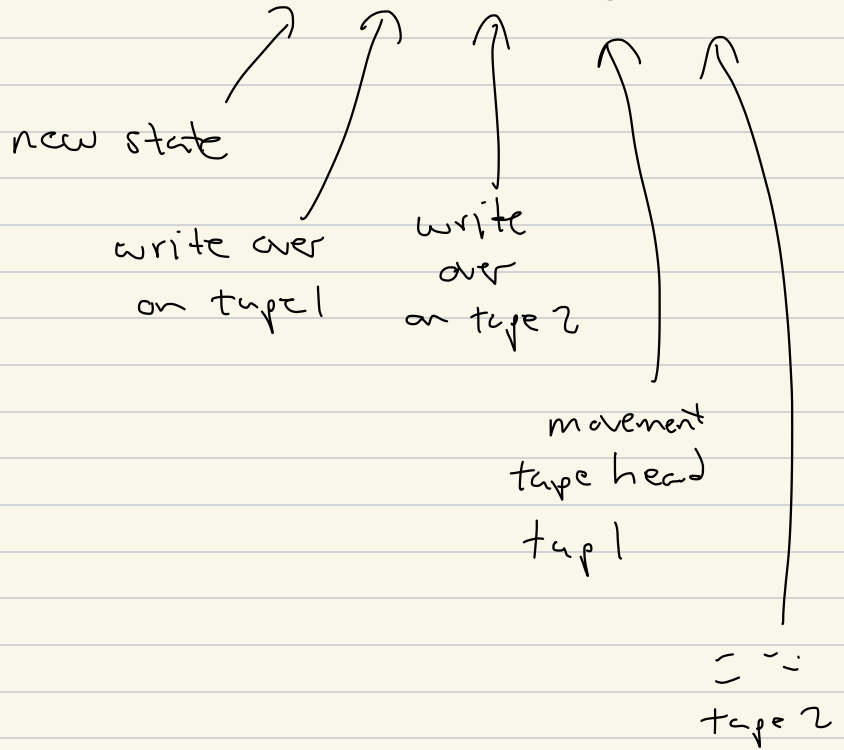 new state
write over
on tape 1
write
over
on tape 2
movement
tape head
tap 1
tape 2